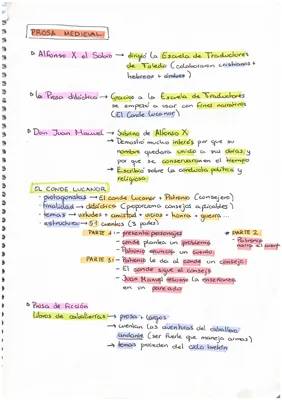 PROSA MEDIEVAL
Alfonso X el Sabio → dirigió la Escuela de Traductores
de Toledo (colaboraron cristianos +
hebreos + árabes)
La Prosa didáctica → Gracias a la Escuela de Traductores
se empezó a usar con fines narrativos
(El Conde Lucanor)
Don Juan Manuel → Sobrino de Alfonso X
→ Demostró mucho interés por que su
nombre quedara unido a sus obras y
por que se conservaran en el tiempo
→ Escribió sobre la conducta política y
religiosa
EL CONDE LUCANOR
- protagonistas → El conde Lucanor + Patronio (consejero)
- finalidad → didáctica (proporciona consejos aplicables)
- temas → virtudes + amistad + vicios + honra + guerra ...
- estructura → 51 cuentos (3 partes)
PARTE 1: - presenta personajes
- conde plantea un problema
- Patronio anuncia un cuento
PARTE 2:
- Patronio
narra el cuento
PARTE 3: - Patronio le da al conde un consejo
- El conde sigue el consejo
- Juan Manuel resume la enseñanza
en un pareado
Prosa de ficción
Libros de caballerías → prosa + largos
→ cuentan las aventuras del caballero
andante (ser fuerte que maneja armas)
→ temas proceden del ciclo bretón